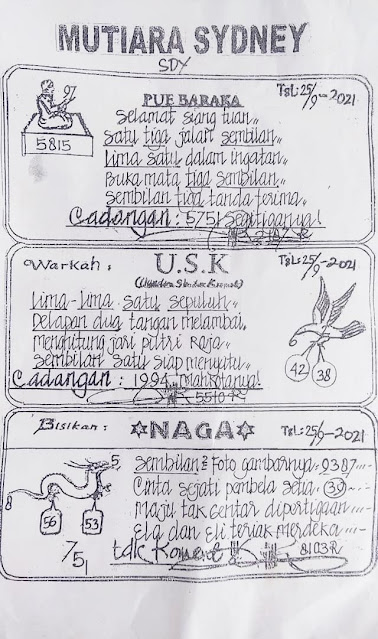 MUTIARA SYDNEY
SDY
97
5815
Tgl: 25/9-2021
PUE BARAKA
Selamat siang tuan
Satu tiga jalan sembilan
Lima satu dalam ingatan
Buka mata tiga sembilan
Sembilan tiga tanda terima
Cadangan : 5751 segitiganya!
Warkah :
U.S.K
Tgl: 25/9-2021
Lima-lima satu sepuluh
Delapan dua tangan melambai
menghitung jari putri raja
Sembilan satu siap menyatu
Cadangan : 1994 mahkotanya!
5510 R
42 38
Bisikan :
NAGA
Tgl: 25/6-2021
5
8
56 53
7/51
Sembilan² Foto gambarnya 9387
Cinta sejati pembela setia 39
Maju tak gentar dipertigaan
Ela dan Eli teriak merdeka
8103 R